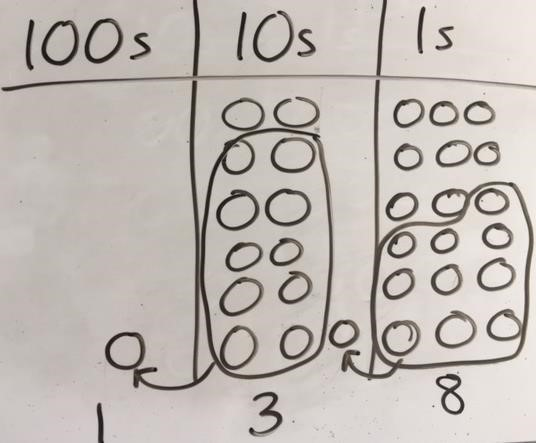 100s 10s 1s
1 3 8